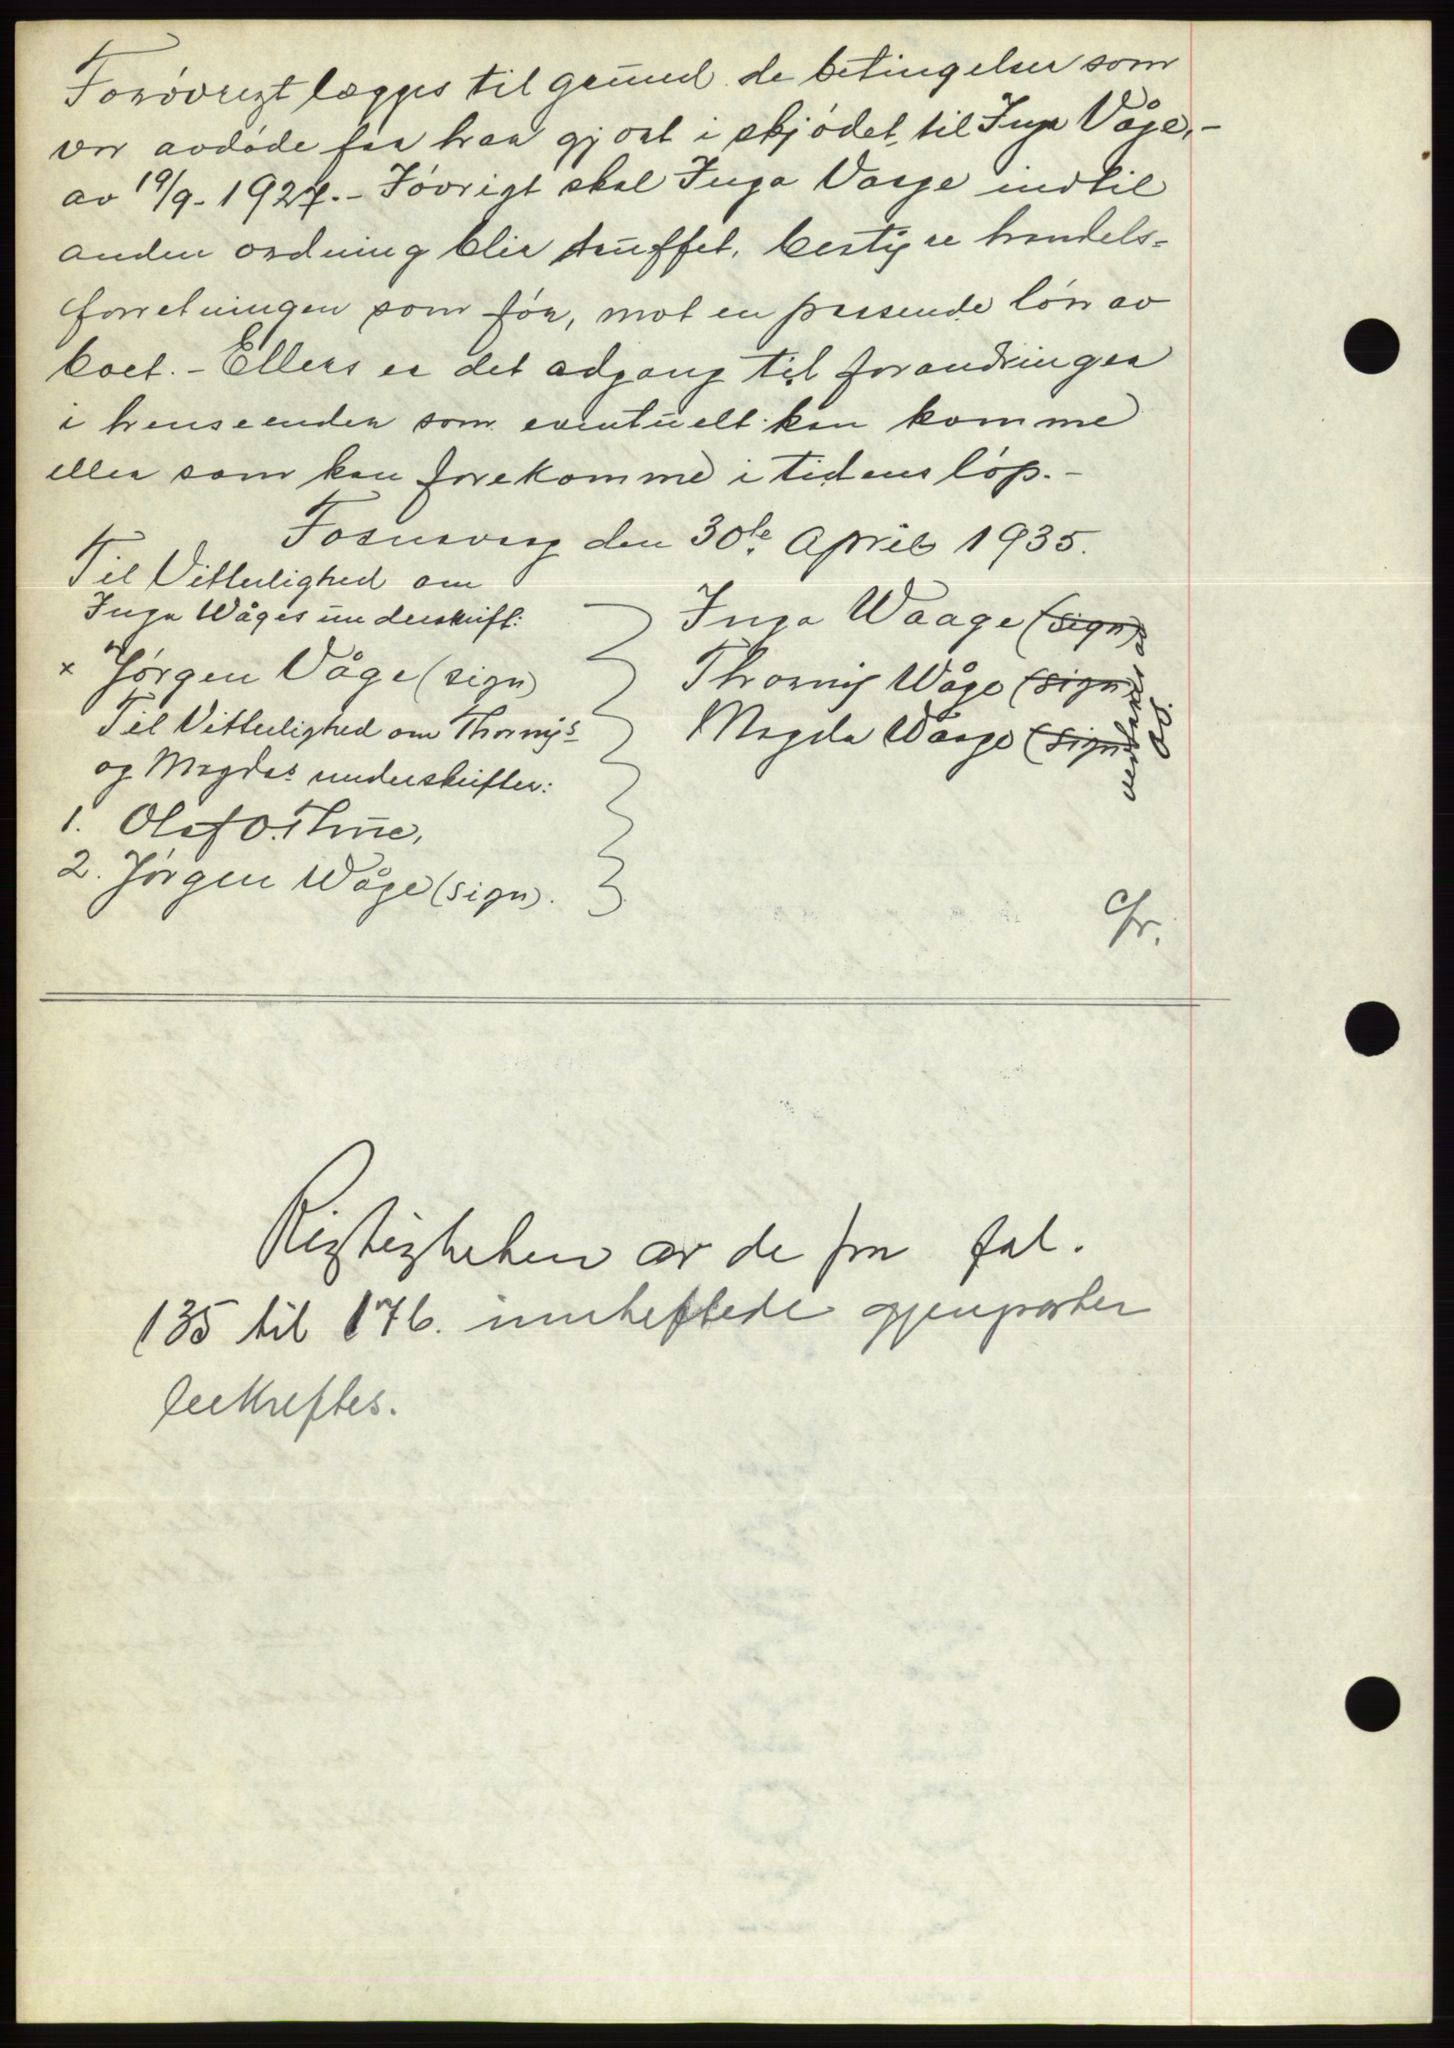 Forøvrigt lægges til grund de betingelser som
vor avdøde far har gjort i skjødet til Inga Våge,-
av 19/9-1927.- Iøvrigt skal Inga Vaage indtil
anden ordning blir truffet, bestyre handels-
forretningen som før, mot en passende løn av
boet.- Ellers er det adgang til forandringer
i henseender som eventuelt kan komme
eller som kan forekomme i tidens løp.-
Fosnavaag den 30te April 1935.
Til Vitterlighed om
Inga Wåges underskrift:
x Jørgen Våge (sign)
Til Vitterlighed om Thornys
og Magdas underskrifter:
1. Olaf O. Thue,
2. Jørgen Wåge (sign).
Inga Waage (sign)
Thorny Wåge (sign)
Magda Waage (sign)
Rigtigheten av de fra fol.
135 til 176. innheftede gjenparter
bekreftes.